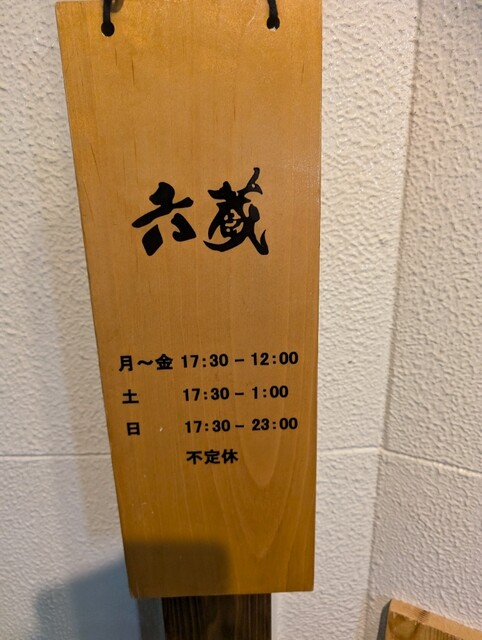 六蔵
月～金 17:30 – 12:00
土 17:30 – 1:00
日 17:30 – 23:00
不定休